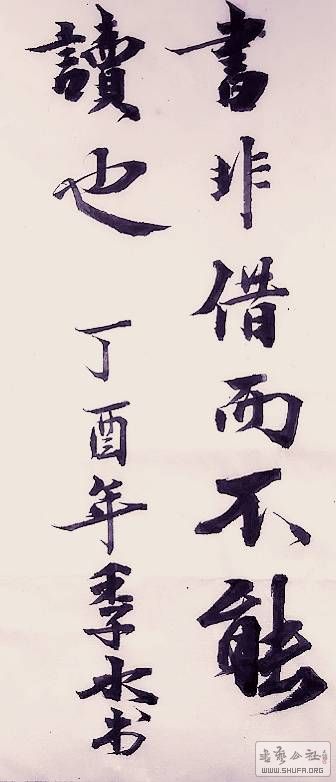 書非借而不能
讀也
丁酉年季水书
WWW.SHUFA.ORG